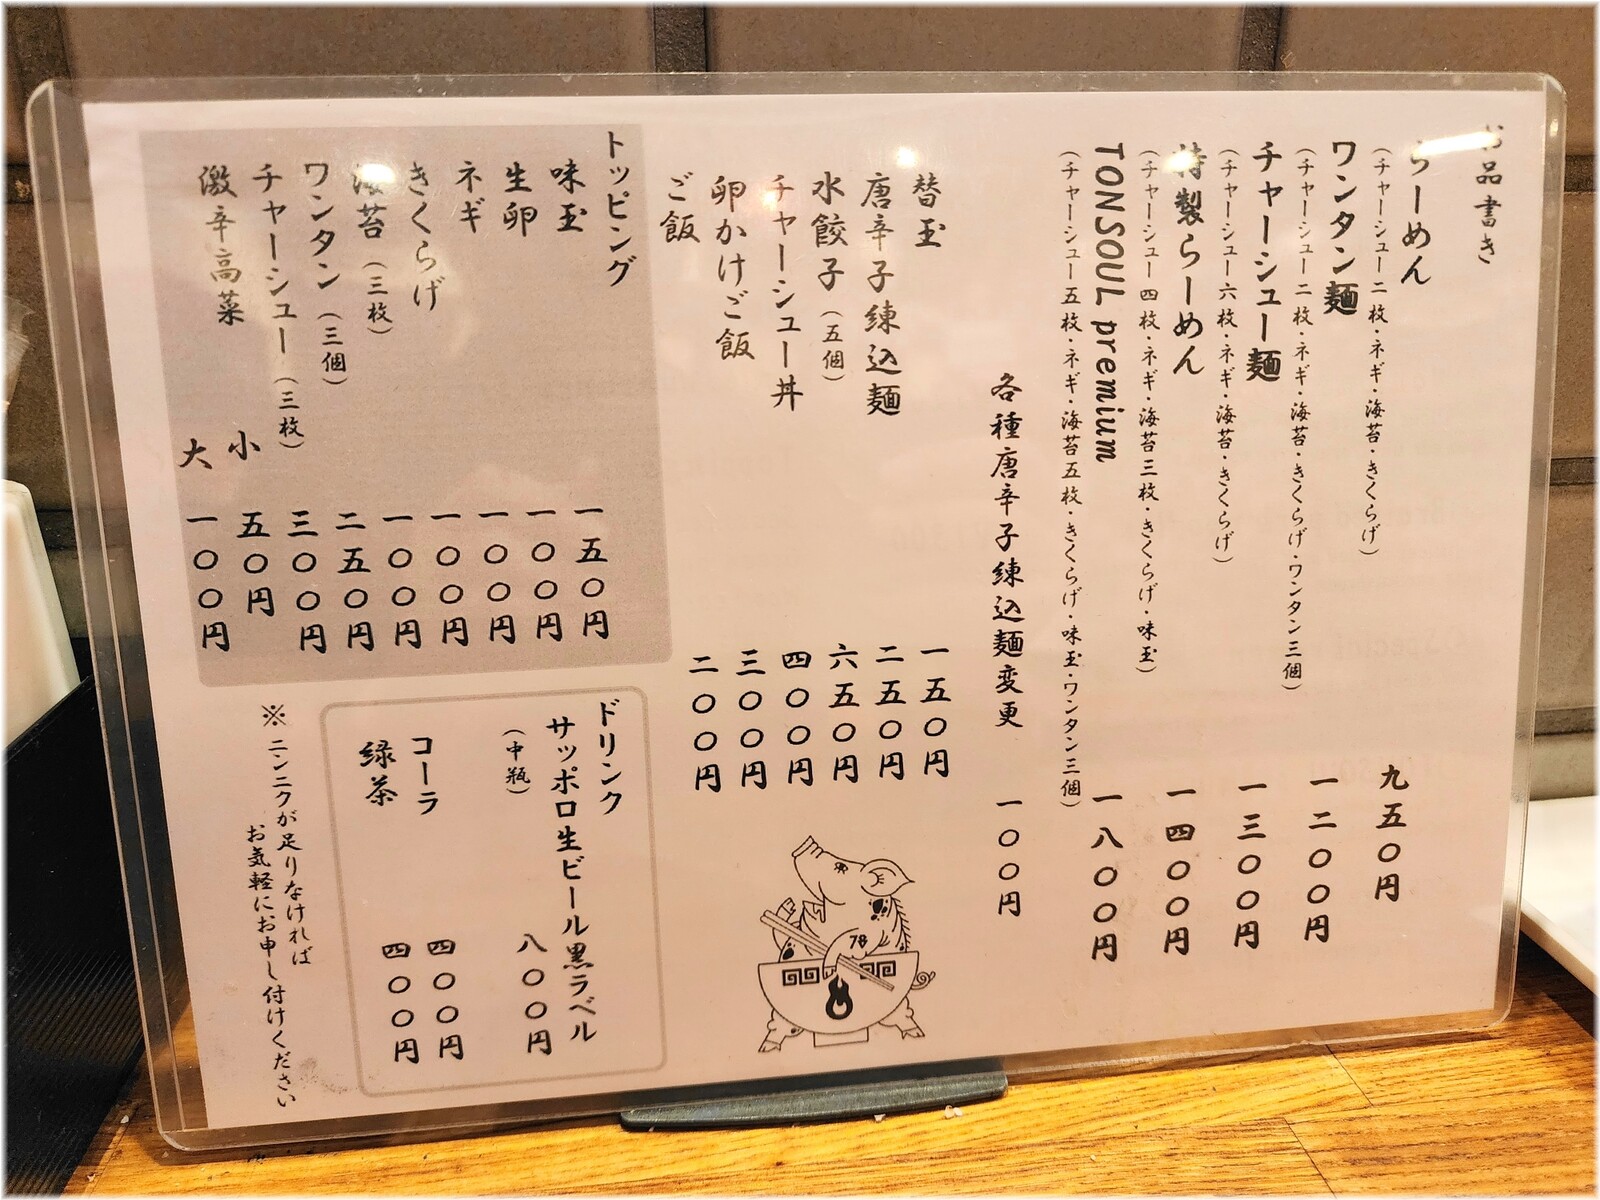 お品書き
らーめん
九五〇円
(チャーシュー二枚・ネギ・海苔・きくらげ)
ワンタン麺
一二〇〇円
(チャーシュー二枚・ネギ・海苔・きくらげ・ワンタン三個)
チャーシュー麺
一三〇〇円
(チャーシュー六枚・ネギ・海苔・きくらげ)
特製らーめん
一四〇〇円
(チャーシュー四枚・ネギ・海苔三枚・きくらげ・味玉)
TONSOUL premium
一八〇〇円
(チャーシュー五枚・ネギ・海苔五枚・きくらげ・味玉・ワンタン三個)
各種唐辛子練込麺変更
一〇〇円
替玉
一五〇円
唐辛子練込麺
二五〇円
水餃子(五個)
六五〇円
チャーシュー丼
四〇〇円
卵かけご飯
三〇〇円
ご飯
二〇〇円
トッピング
味玉
一五〇円
生卵
一〇〇円
ネギ
一〇〇円
きくらげ
一〇〇円
海苔(三枚)
一〇〇円
ワンタン(三個)
二五〇円
チャーシュー(三枚)
三〇〇円
激辛高菜
小
五〇円
大
一〇〇円
ドリンク
サッポロ生ビール黒ラベル
(中瓶)
八〇〇円
コーラ
四〇〇円
緑茶
四〇〇円
※ニンニクが足りなければ
お気軽にお申し付けください